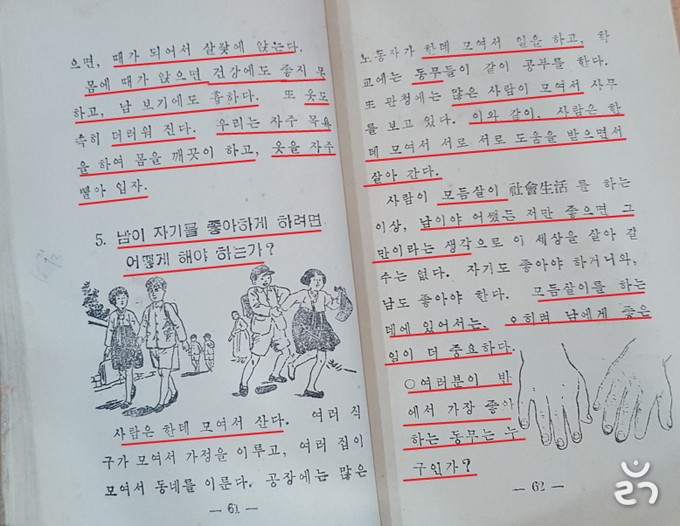 으면, 때가 되어서 살갗에 앉는다.
몸에 때가 앉으면 건강에도 좋지 못
하고, 남 보기에도 흉하다. 또 옷도
특히 더러워 진다. 우리는 자주 목욕
을 하여 몸을 깨끗이 하고, 옷을 자주
빨아 입자.
5. 남이 자기를 좋아하게 하려면
어떻게 해야 하는가?
사람은 한데 모여서 산다. 여러 식
구가 모여서 가정을 이루고, 여러 집이
모여서 동네를 이룬다. 공장에는 많은
— 61 —
노동자가 한데 모여서 일을 하고, 학
교에는 동무들이 같이 공부를 한다.
또 관청에는 많은 사람이 모여서 사무
를 보고 있다. 이와 같이, 사람은 한
데 모여서 서로 서로 도움을 받으면서
살아 간다.
사람이 모듬살이 社會生活 를 하는
이상, 남이야 어쨌든 저만 좋으면 그
만이라는 생각으로 이 세상을 살아 갈
수는 없다. 자기도 좋아야 하거니와,
남도 좋아야 한다. 모듬살이를 하는
데에 있어서는, 오히려 남에게 좋은
일이 더 중요하다.
○여러분이 반
에서 가장 좋아
하는 동무는 누
구인가?
— 62 —